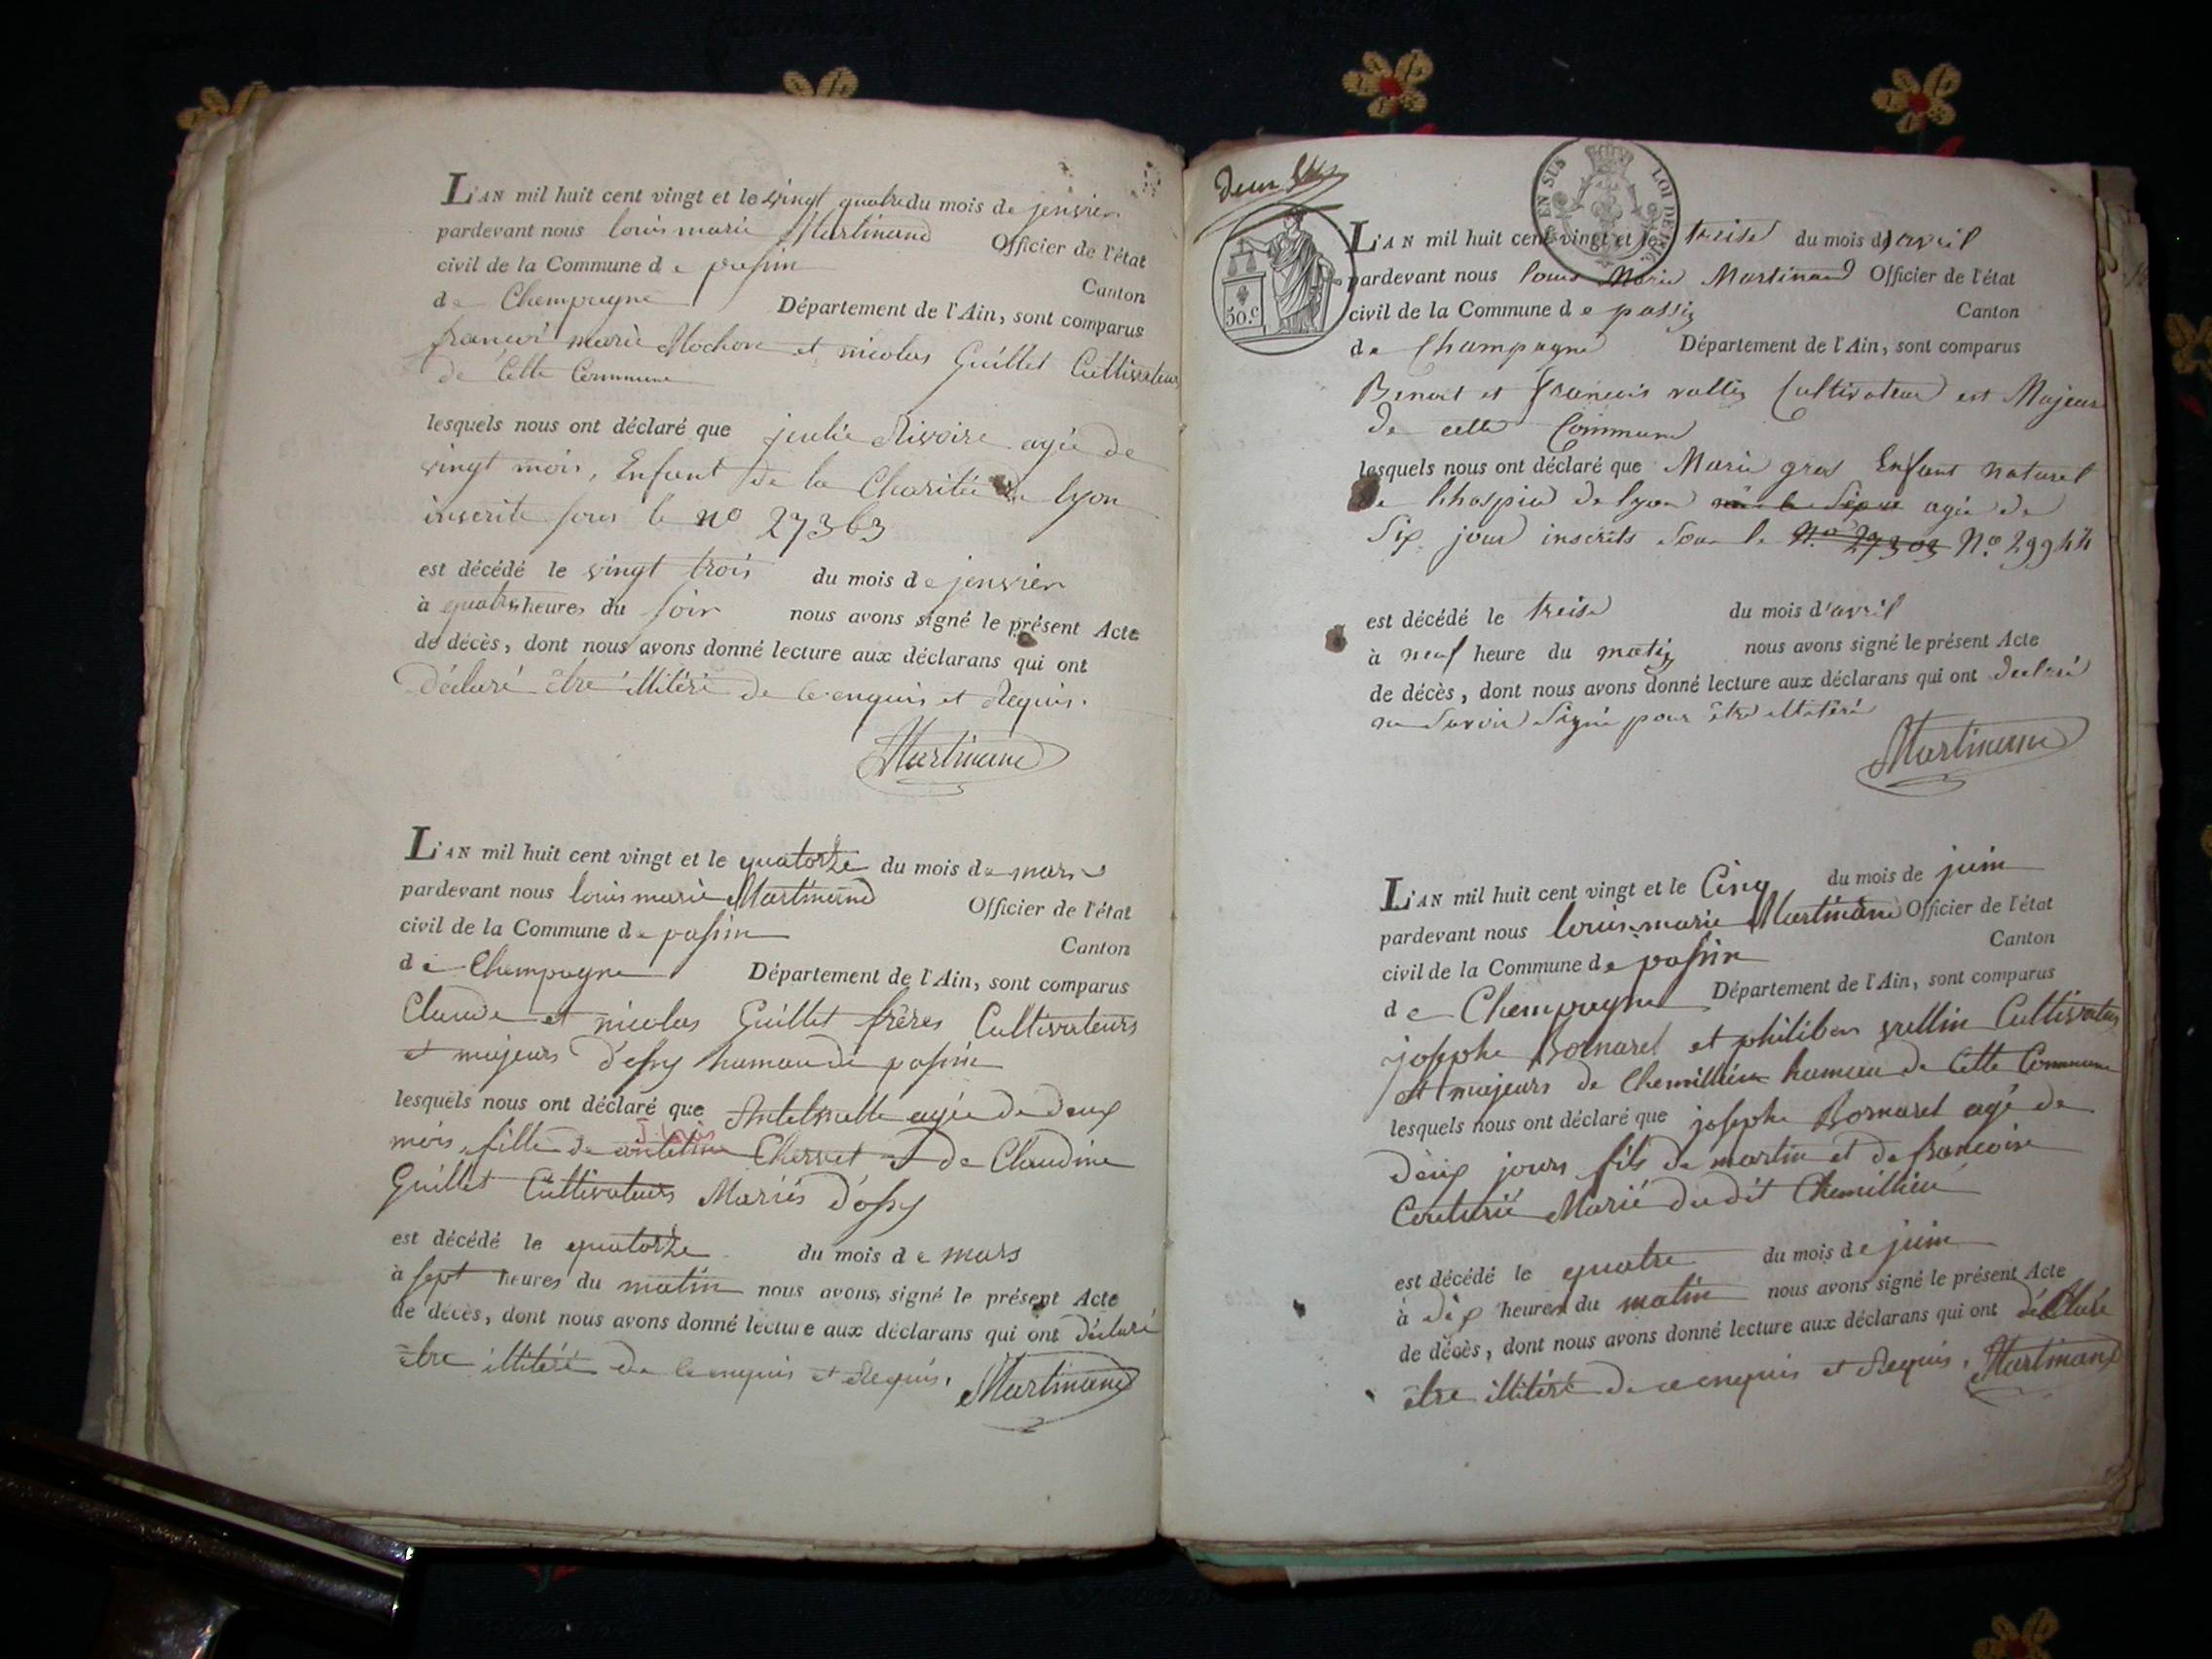 L'AN mil huit cent vingt et le vingt quatre du mois de jenvier
pardevant nous louis marie Martinand Officier de l'état
civil de la Commune de passin Canton
de Champagne Département de l'Ain, sont comparus
francois marie Mochon et nicolas Guillet Cultivateurs
de Cette Commune
lesquels nous ont déclaré que julie Rivoire agée de
vingt mois, Enfant de la Charitée de lyon
inscrite sous le no 27363
est décédé le vingt trois du mois de jenvier
à quatre heures du soir nous avons signé le présent Acte
de décès, dont nous avons donné lecture aux déclarans qui ont
déclaré être illitéré de ce enquis et Requis.
Martinand
L'AN mil huit cent vingt et le quatorze du mois de mars
pardevant nous louis marie Martinand Officier de l'état
civil de la Commune de passin Canton
de Champagne Département de l'Ain, sont comparus
Claude et nicolas Guillet frères Cultivateurs
et majeurs d'ossy hamau de passin
lesquels nous ont déclaré que Antelmette agée de deux
mois, fille de antelme Chervet et de Claudine
Guillet Cultivateurs Mariés d'ossy
est décédé le quatorze du mois de mars
à sept heures du matin nous avons signé le présent Acte
de décès, dont nous avons donné lecture aux déclarans qui ont déclaré
être illitéré de ce enquis et Requis. Martinand
EN SUS LOI DE 1816
50.c
L'AN mil huit cent vingt et le treise du mois d'avril
pardevant nous louis Marie Martinand Officier de l'état
civil de la Commune de passin Canton
de Champagne Département de l'Ain, sont comparus
Benoit et francois vallin Cultivateur est Majeur
de cette Commune
lesquels nous ont déclaré que Marie gras Enfant naturel
de lhospice de lyon agée de
Six jour inscrits Sour le N.o 27303 N.o 29944
est décédé le treise du mois d'avril
à neuf heure du matin nous avons signé le présent Acte
de décès, dont nous avons donné lecture aux déclarans qui ont declaré
ne Savoir Signé pour être illitéré
Martinand
L'AN mil huit cent vingt et le Cinq du mois de juin
pardevant nous louis marie Martinand Officier de l'état
civil de la Commune de passin Canton
de Champagne Département de l'Ain, sont comparus
josephe Bornarel et philibert vullin Cultivateurs
et majeurs de Chemillieu hamau de Cette Commune
lesquels nous ont déclaré que josephe Bornarel agé de
deux jours fils de martin et de francoise
Couturié Marié dudit Chemillieu
est décédé le quatre du mois de juin
à dix heures du matin nous avons signé le présent Acte
de décès, dont nous avons donné lecture aux déclarans qui ont déclaré
être illitéré de ce enquis et Requis. Martinand